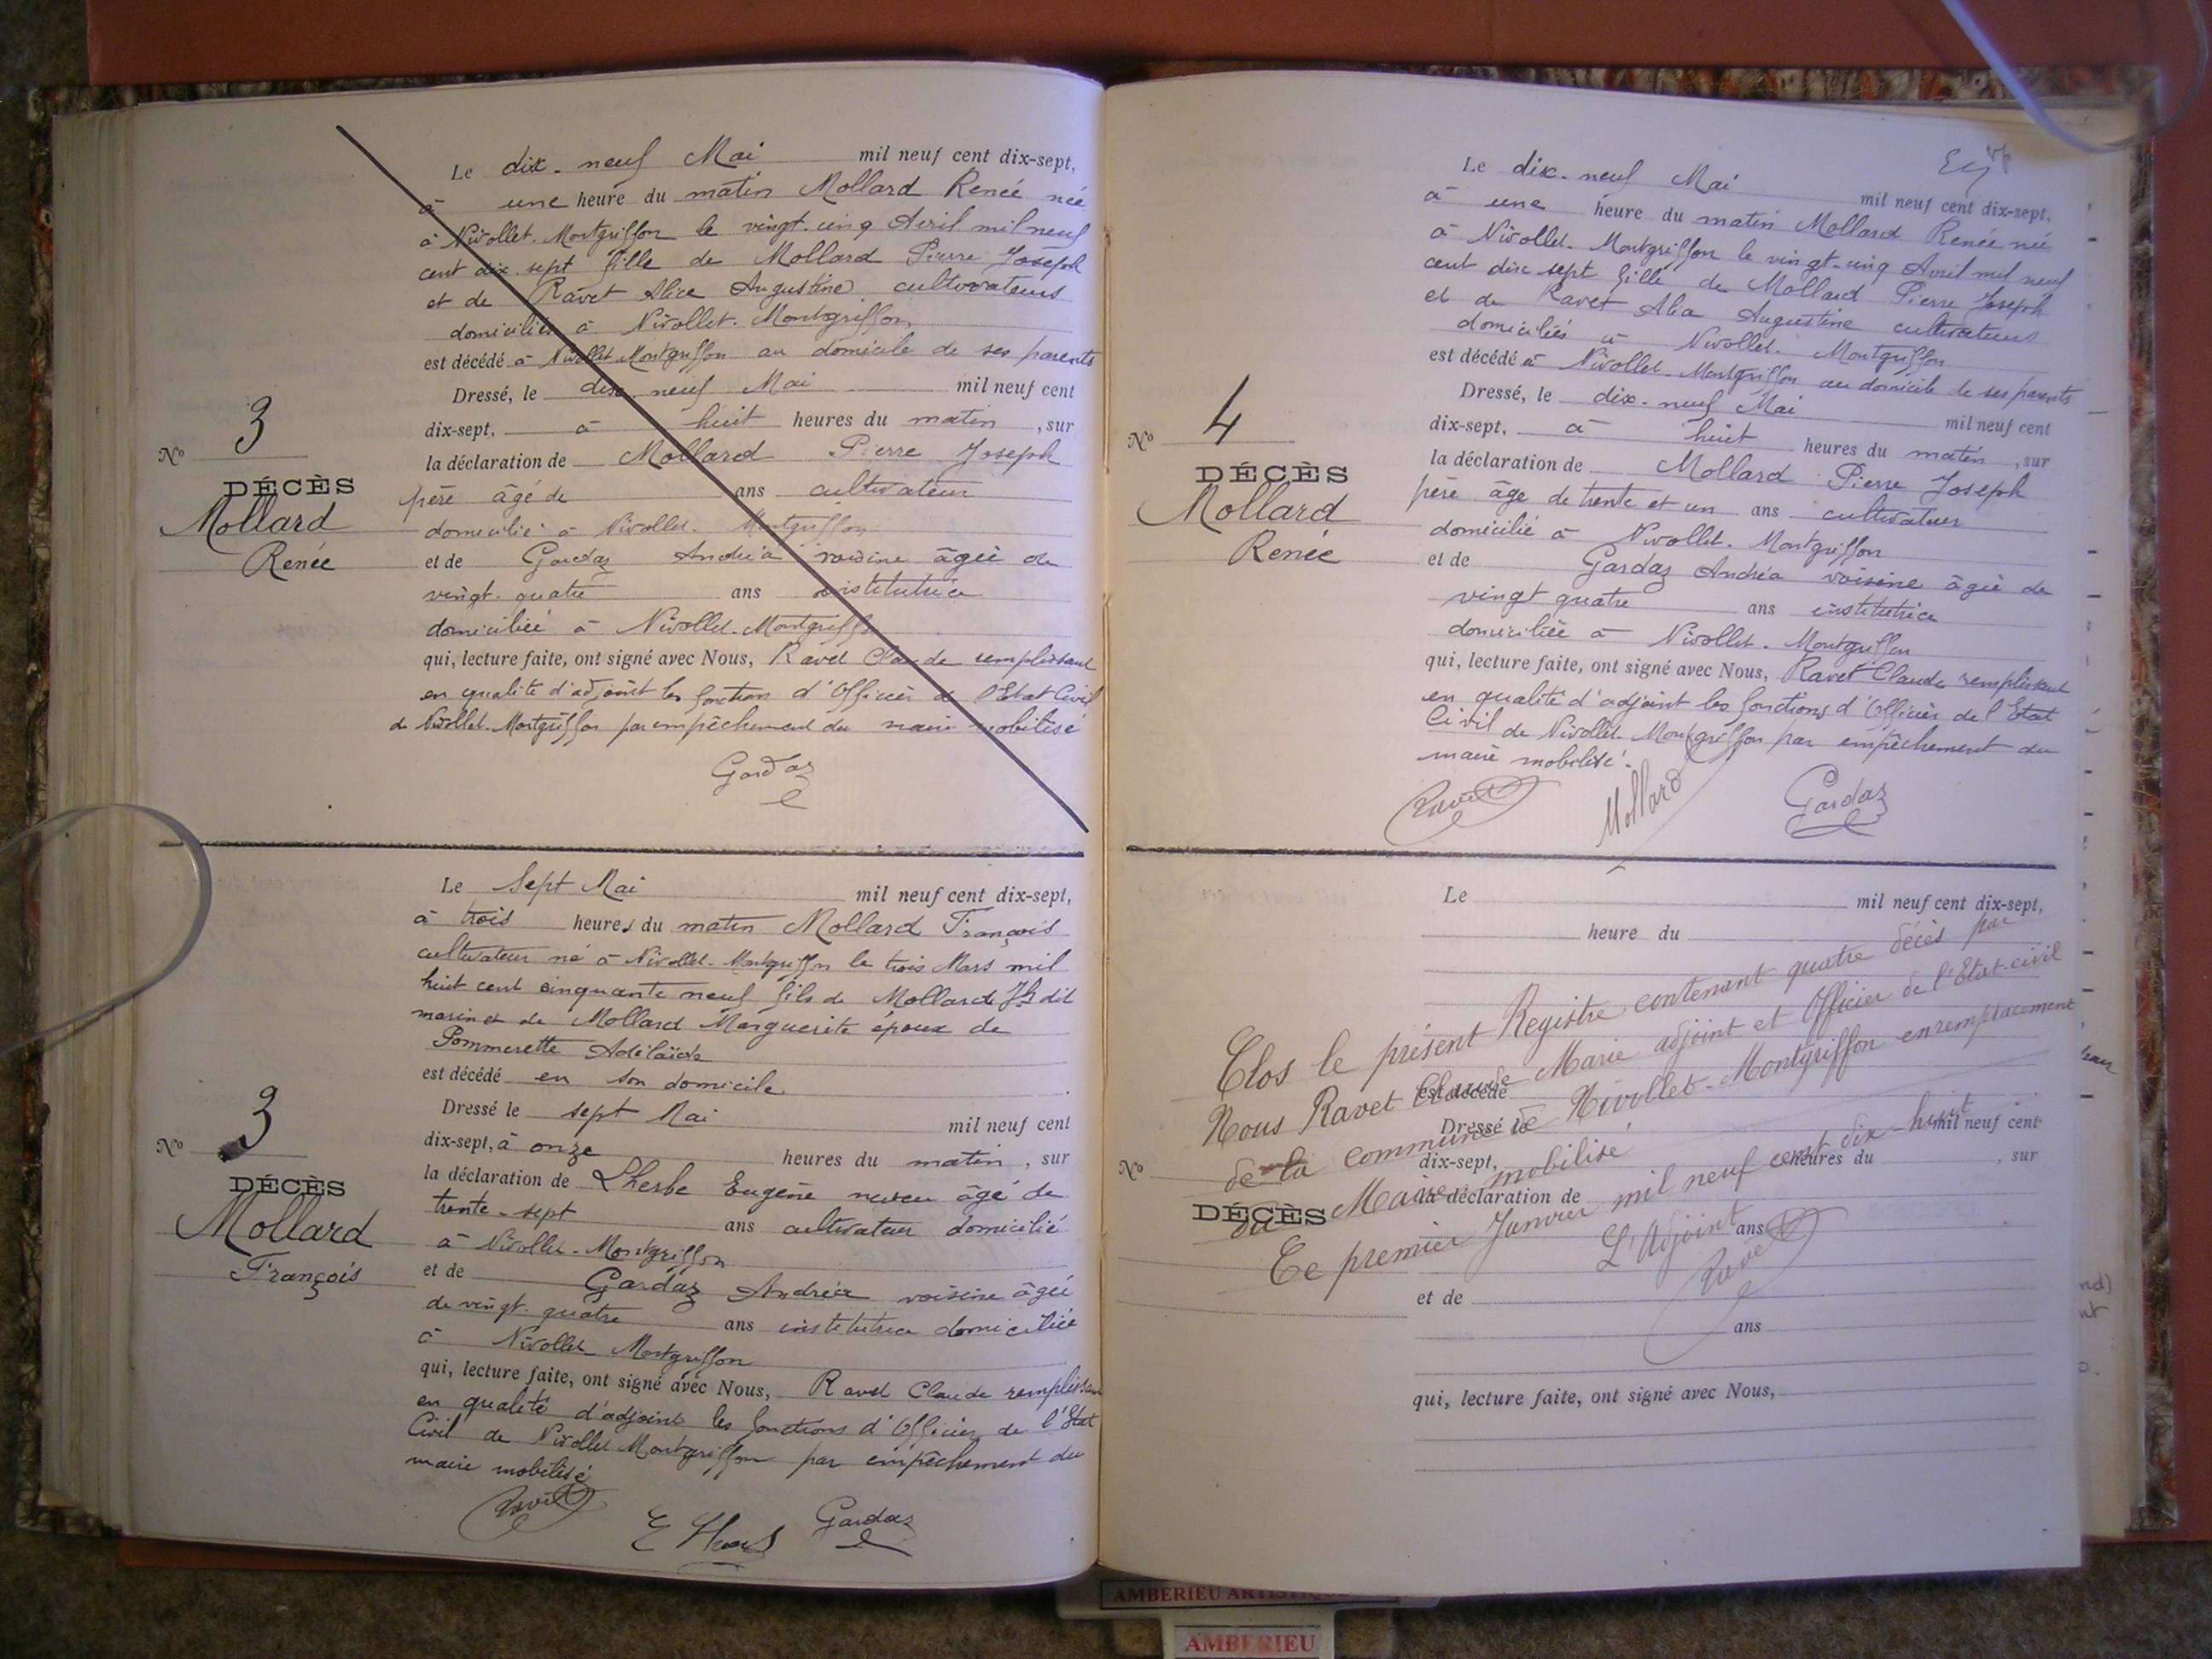 Le dix-neuf Mai mil neuf cent dix-sept,
à une heure du matin Mollard Renée née
à Nivollet-Montgriffon le vingt-cinq Avril mil neuf
cent dix sept fille de Mollard Pierre Joseph
et de Ravet Alice Augustine cultivateurs
domiciliés à Nivollet-Montgriffon
est décédé à Nivollet-Montgriffon au domicile de ses parents
Dressé, le dix-neuf Mai mil neuf cent
dix-sept, à huit heures du matin, sur
la déclaration de Mollard Pierre Joseph
père âgé de ans cultivateur
domicilié à Nivollet-Montgriffon
et de Gardaz Andréa voisine âgée de
vingt-quatre ans institutrice
domiciliée à Nivollet-Montgriffon
qui, lecture faite, ont signé avec Nous, Ravet Claude remplissant
en qualité d'adjoint les fonctions d'Officier de l'Etat Civil
de Nivollet-Montgriffon par empêchement du maire mobilisé
Gardaz
No 3
DÉCÈS
Mollard
Renée
Le Sept Mai mil neuf cent dix-sept,
à trois heures du matin Mollard François
cultivateur né à Nivollet-Montgriffon le trois Mars mil
huit cent cinquante neuf fils de Mollard Jh dit
marin et de Mollard Marguerite époux de
Pommerette Adélaïde
est décédé en son domicile
Dressé le sept Mai mil neuf cent
dix-sept, à onze heures du matin, sur
la déclaration de Lherbe Eugène neveu âgé de
trente-sept ans cultivateur domicilié
à Nivollet-Montgriffon
et de Gardaz Andréa voisine âgée
de vingt-quatre ans institutrice domiciliée
à Nivollet Montgriffon
qui, lecture faite, ont signé avec Nous, Ravet Claude remplissant
en qualité d'adjoint les fonctions d'Officier de l'Etat
Civil de Nivollet Montgriffon par empêchement du
maire mobilisé
Ravet
Gardaz
No 3
DÉCÈS
Mollard
François
Le dix-neuf Mai mil neuf cent dix-sept,
à une heure du matin Mollard Renée née
à Nivollet-Montgriffon le vingt-cinq Avril mil neuf
cent dix sept fille de Mollard Pierre Joseph
et de Ravet Alia Augustine cultivateurs
domiciliés à Nivollet-Montgriffon
est décédé à Nivollet-Montgriffon au domicile de ses parents
Dressé, le dix-neuf Mai mil neuf cent
dix-sept, à huit heures du matin, sur
la déclaration de Mollard Pierre Joseph
père âgé de trente et un ans cultivateur
domicilié à Nivollet-Montgriffon
et de Gardaz Andréa voisine âgée de
vingt quatre ans institutrice
domiciliée à Nivollet-Montgriffon
qui, lecture faite, ont signé avec Nous, Ravet Claude remplissant
en qualité d'adjoint les fonctions d'Officier de l'Etat
Civil de Nivollet-Montgriffon par empêchement du
maire mobilisé.
Ravet Mollard Gardaz
No 4
DÉCÈS
Mollard
Renée
Le mil neuf cent dix-sept,
heure du
est décédé
Dressé le mil neuf cent
dix-sept, heures du , sur
la déclaration de
ans
et de
ans
qui, lecture faite, ont signé avec Nous,
No
DÉCÈS
Clos le présent Registre contenant quatre décès par
Nous Ravet Claude Marie adjoint et Officier de l'Etat-civil
de la commune de Nivollet-Montgriffon en remplacement
du Maire mobilisé
Ce premier Janvier mil neuf cent dix-huit
L'Adjoint
Ravet
AMBERIEU